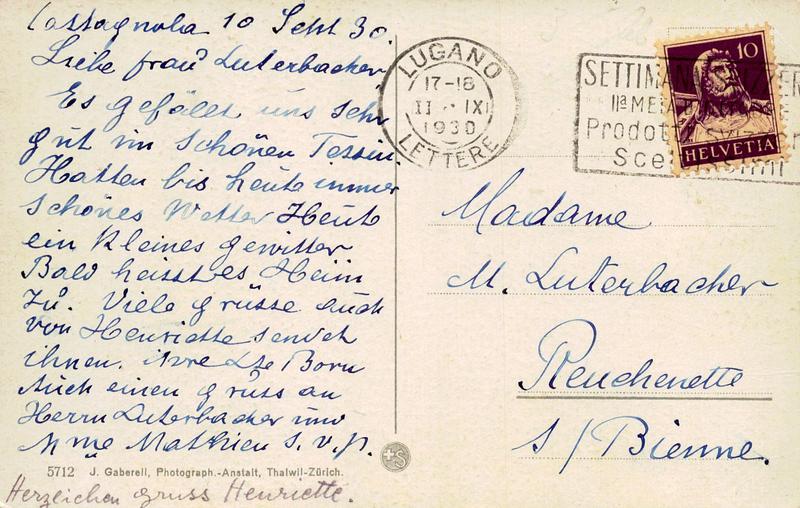 Castagnola 10 Sept 30.
Liebe frau Luterbacher
Es gefällt uns sehr
gut im schönen Tessin.
Hatten bis heute immer
schönes Wetter Heute
ein kleines gewitter
Bald heisst es Heim
zu. Viele grüsse auch
von Henriette sendet
ihnen. Born
Auch einen gruss an
Herrn Luterbacher und
Mme Mathieu S. v. p.
5712 J. Gaberell, Photograph.-Anstalt, Thalwil-Zürich.
Herzeichen gruss Henriette.
+S
LUGANO
17-18
II · IX
1930
LETTERE
SETTIMANA
IIa
Prodotti
10
HELVETIA
Madame
M. Luterbacher
Reuchenette
s/Bienne.